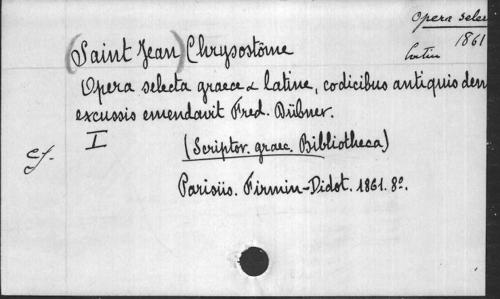 Opera selec
1861
Latin
(Saint Jean) Chrysostôme
Opera selecta graece & latine, codicibus antiquis den
excussis emendavit Fred. Dübner.
I
cf.
(Scriptor. graec. Bibliotheca)
Parisiis. Firmin-Didot. 1861. 8º.